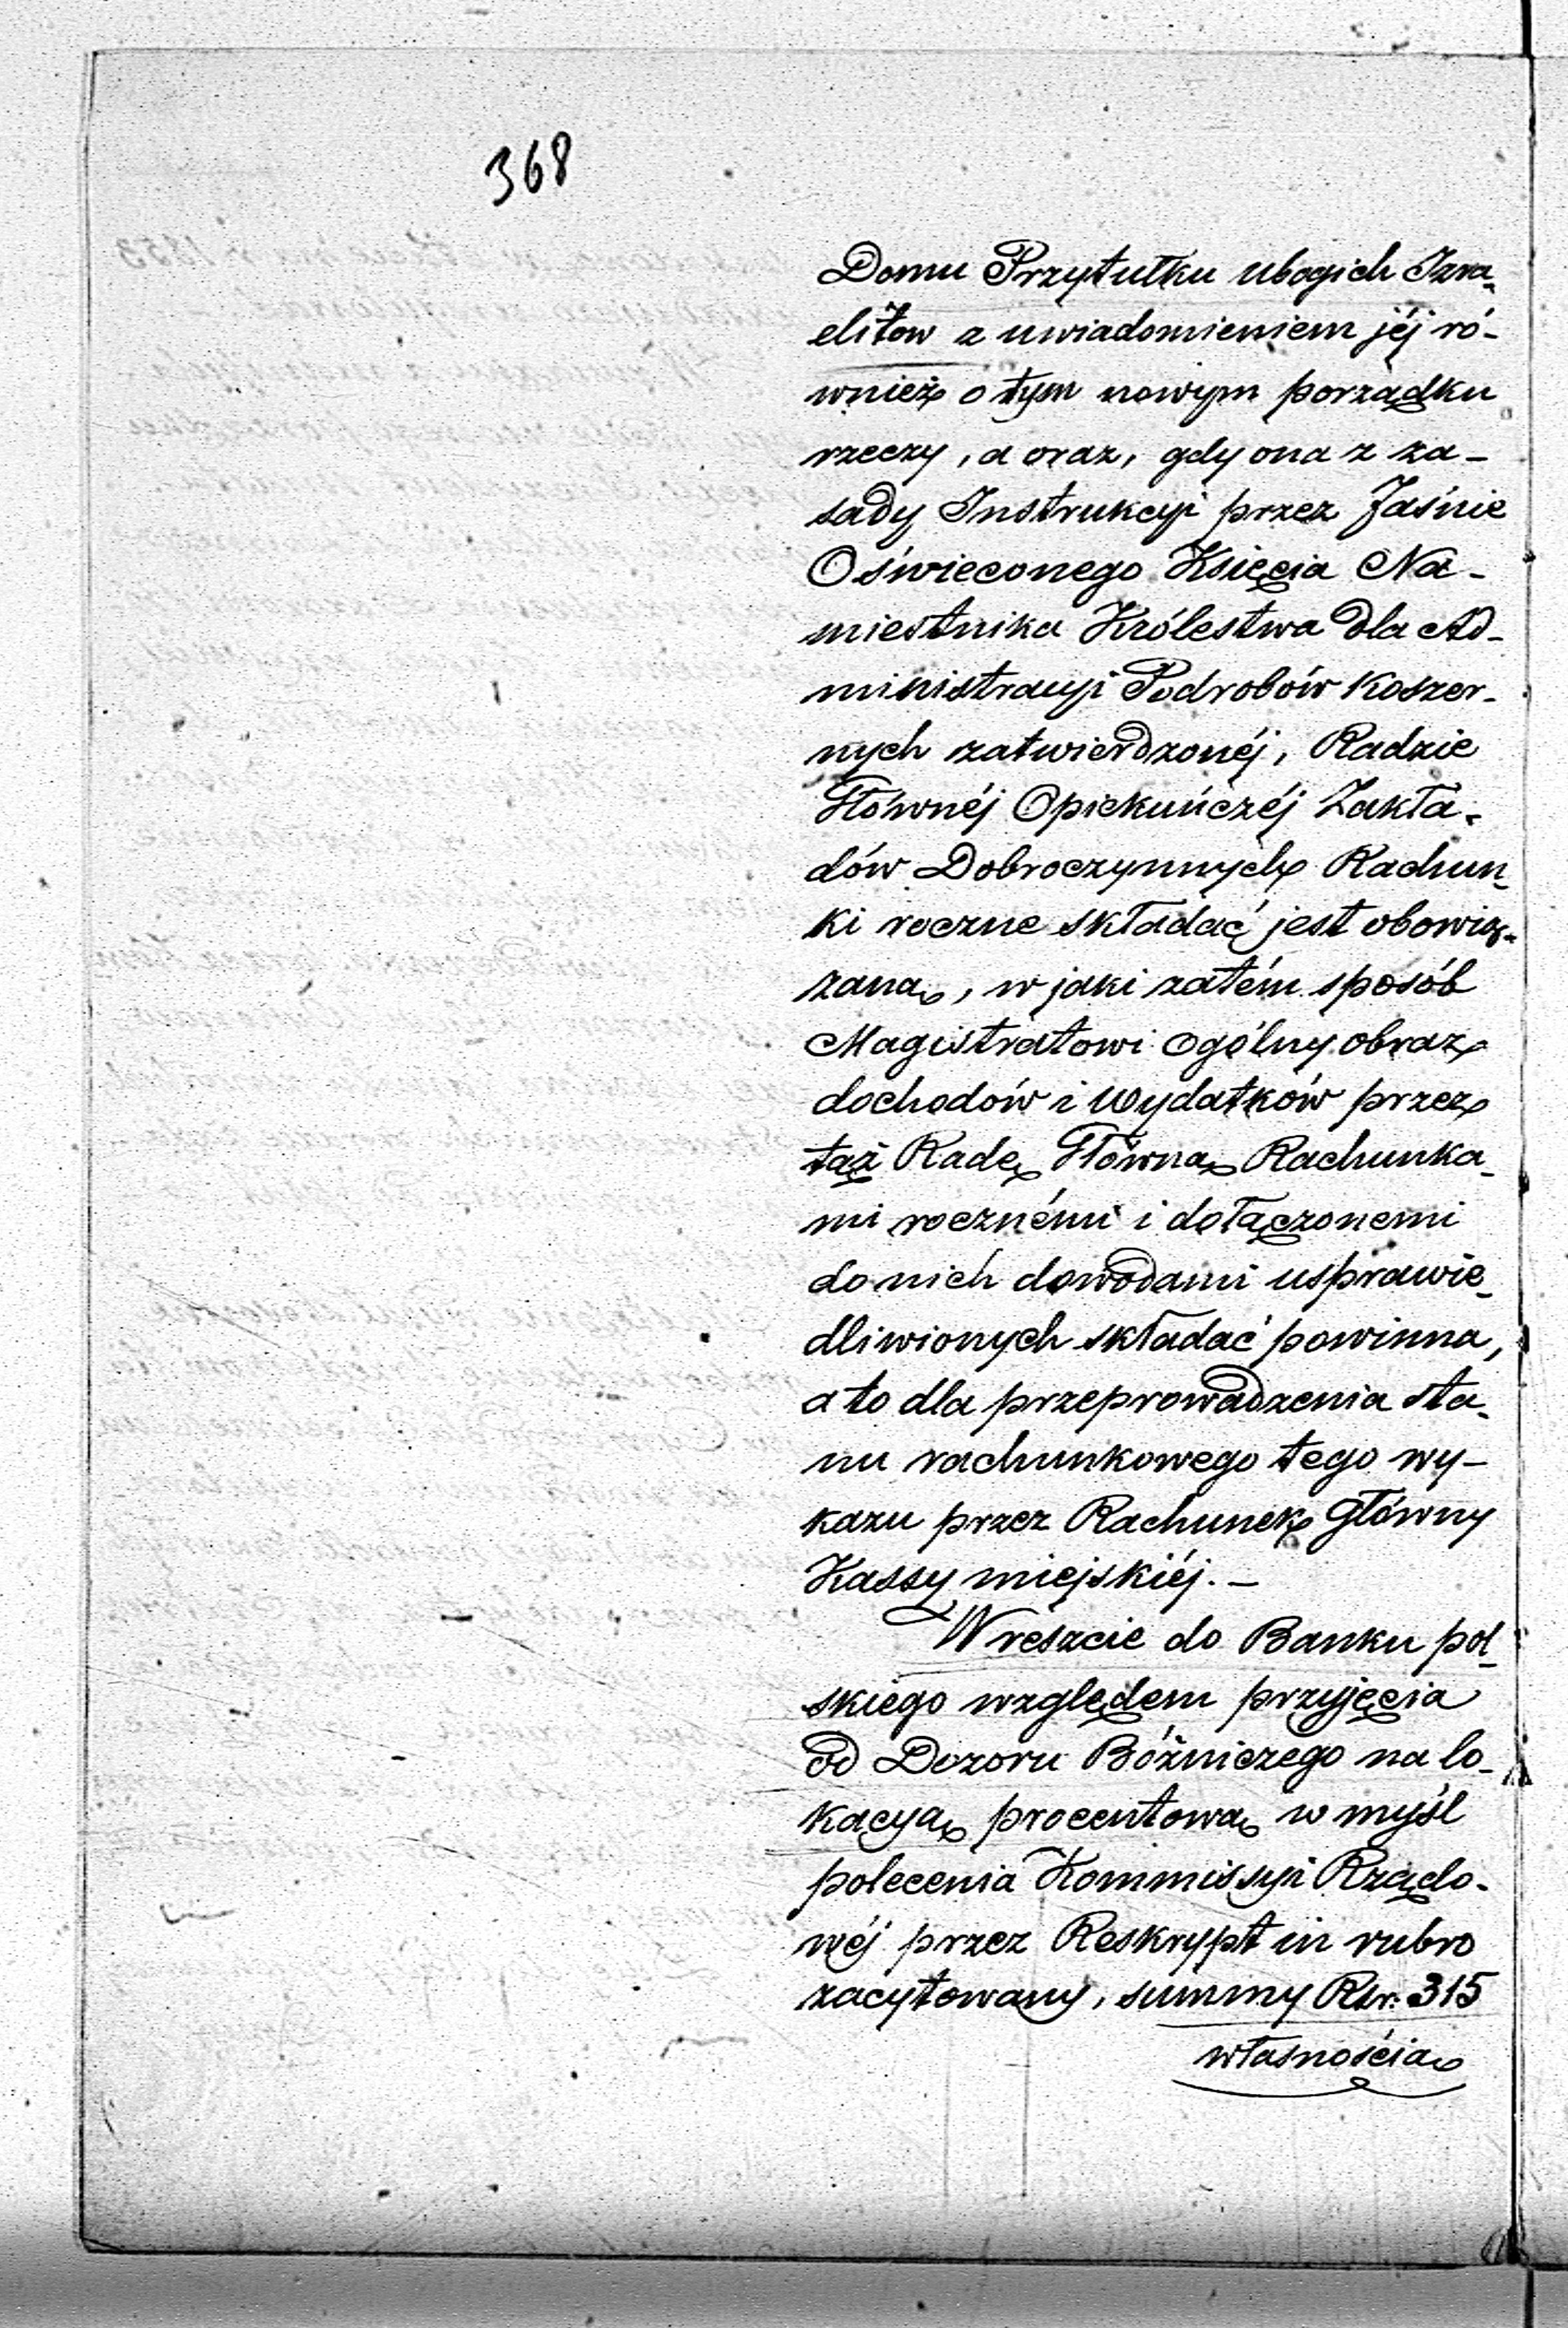 368
Domu Przytułku ubogich Izra-
elitow z uwiadomieniem jéj ró-
wnież o tym nowym porządku
rzeczy, a oraz, gdy ona z za-
sady Instrukcyi przez Jaśnie
Oświeconego Księcia Na-
miestnika Królestwa dla Ad-
ministracyi Podrobów Koszer-
nych zatwierdzonéj, Radzie
Głównéj Opiekuńczéj Zakła-
dów Dobroczynnych Rachun-
ki roczne składać jest obowią-
zaną, w jaki zatém sposób
Magistratowi ogólny obraz
dochodów i wydatków przez
taż Radę Główną Rachunka-
mi rocznémi i dołączonemi
do nich dowodami usprawie-
dliwionych składać powinna,
a to dla przeprowadzenia sta-
nu rachunkowego tego wy-
kazu przez Rachunek Główny
Kassy miejskiéj. —
Wreszcie do Banku pol-
skiego względem przyjęcia
od Dozoru Bóżniczego na lo-
kacyą procentową w myśl
polecenia Kommissyi Rządo-
wéj przez Reskrypt in rubro
zacytowany, summy Rsr: 315
własnością